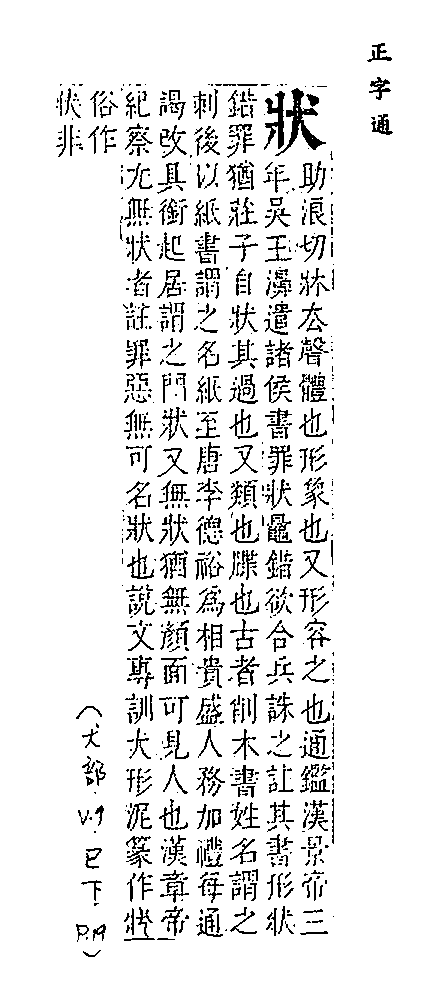 正字通
狀
助浪切牀去聲體也形象也又形容之也通鑑漢景帝三
年吳王濞遣諸侯書罪狀鼂錯欲合兵誅之註其書形狀
錯罪猶莊子自狀其過也又類也牒也古者削木書姓名謂之
刺後以紙書謂之名紙至唐李德裕為相貴盛人務加禮每通
謁改具銜起居謂之門狀又無狀猶無顏面可見人也漢章帝
紀察尤無狀者註罪惡無可名狀也說文專訓犬形泥篆作狀
俗作
状非
(犬部.V.9.巳下.P.19)